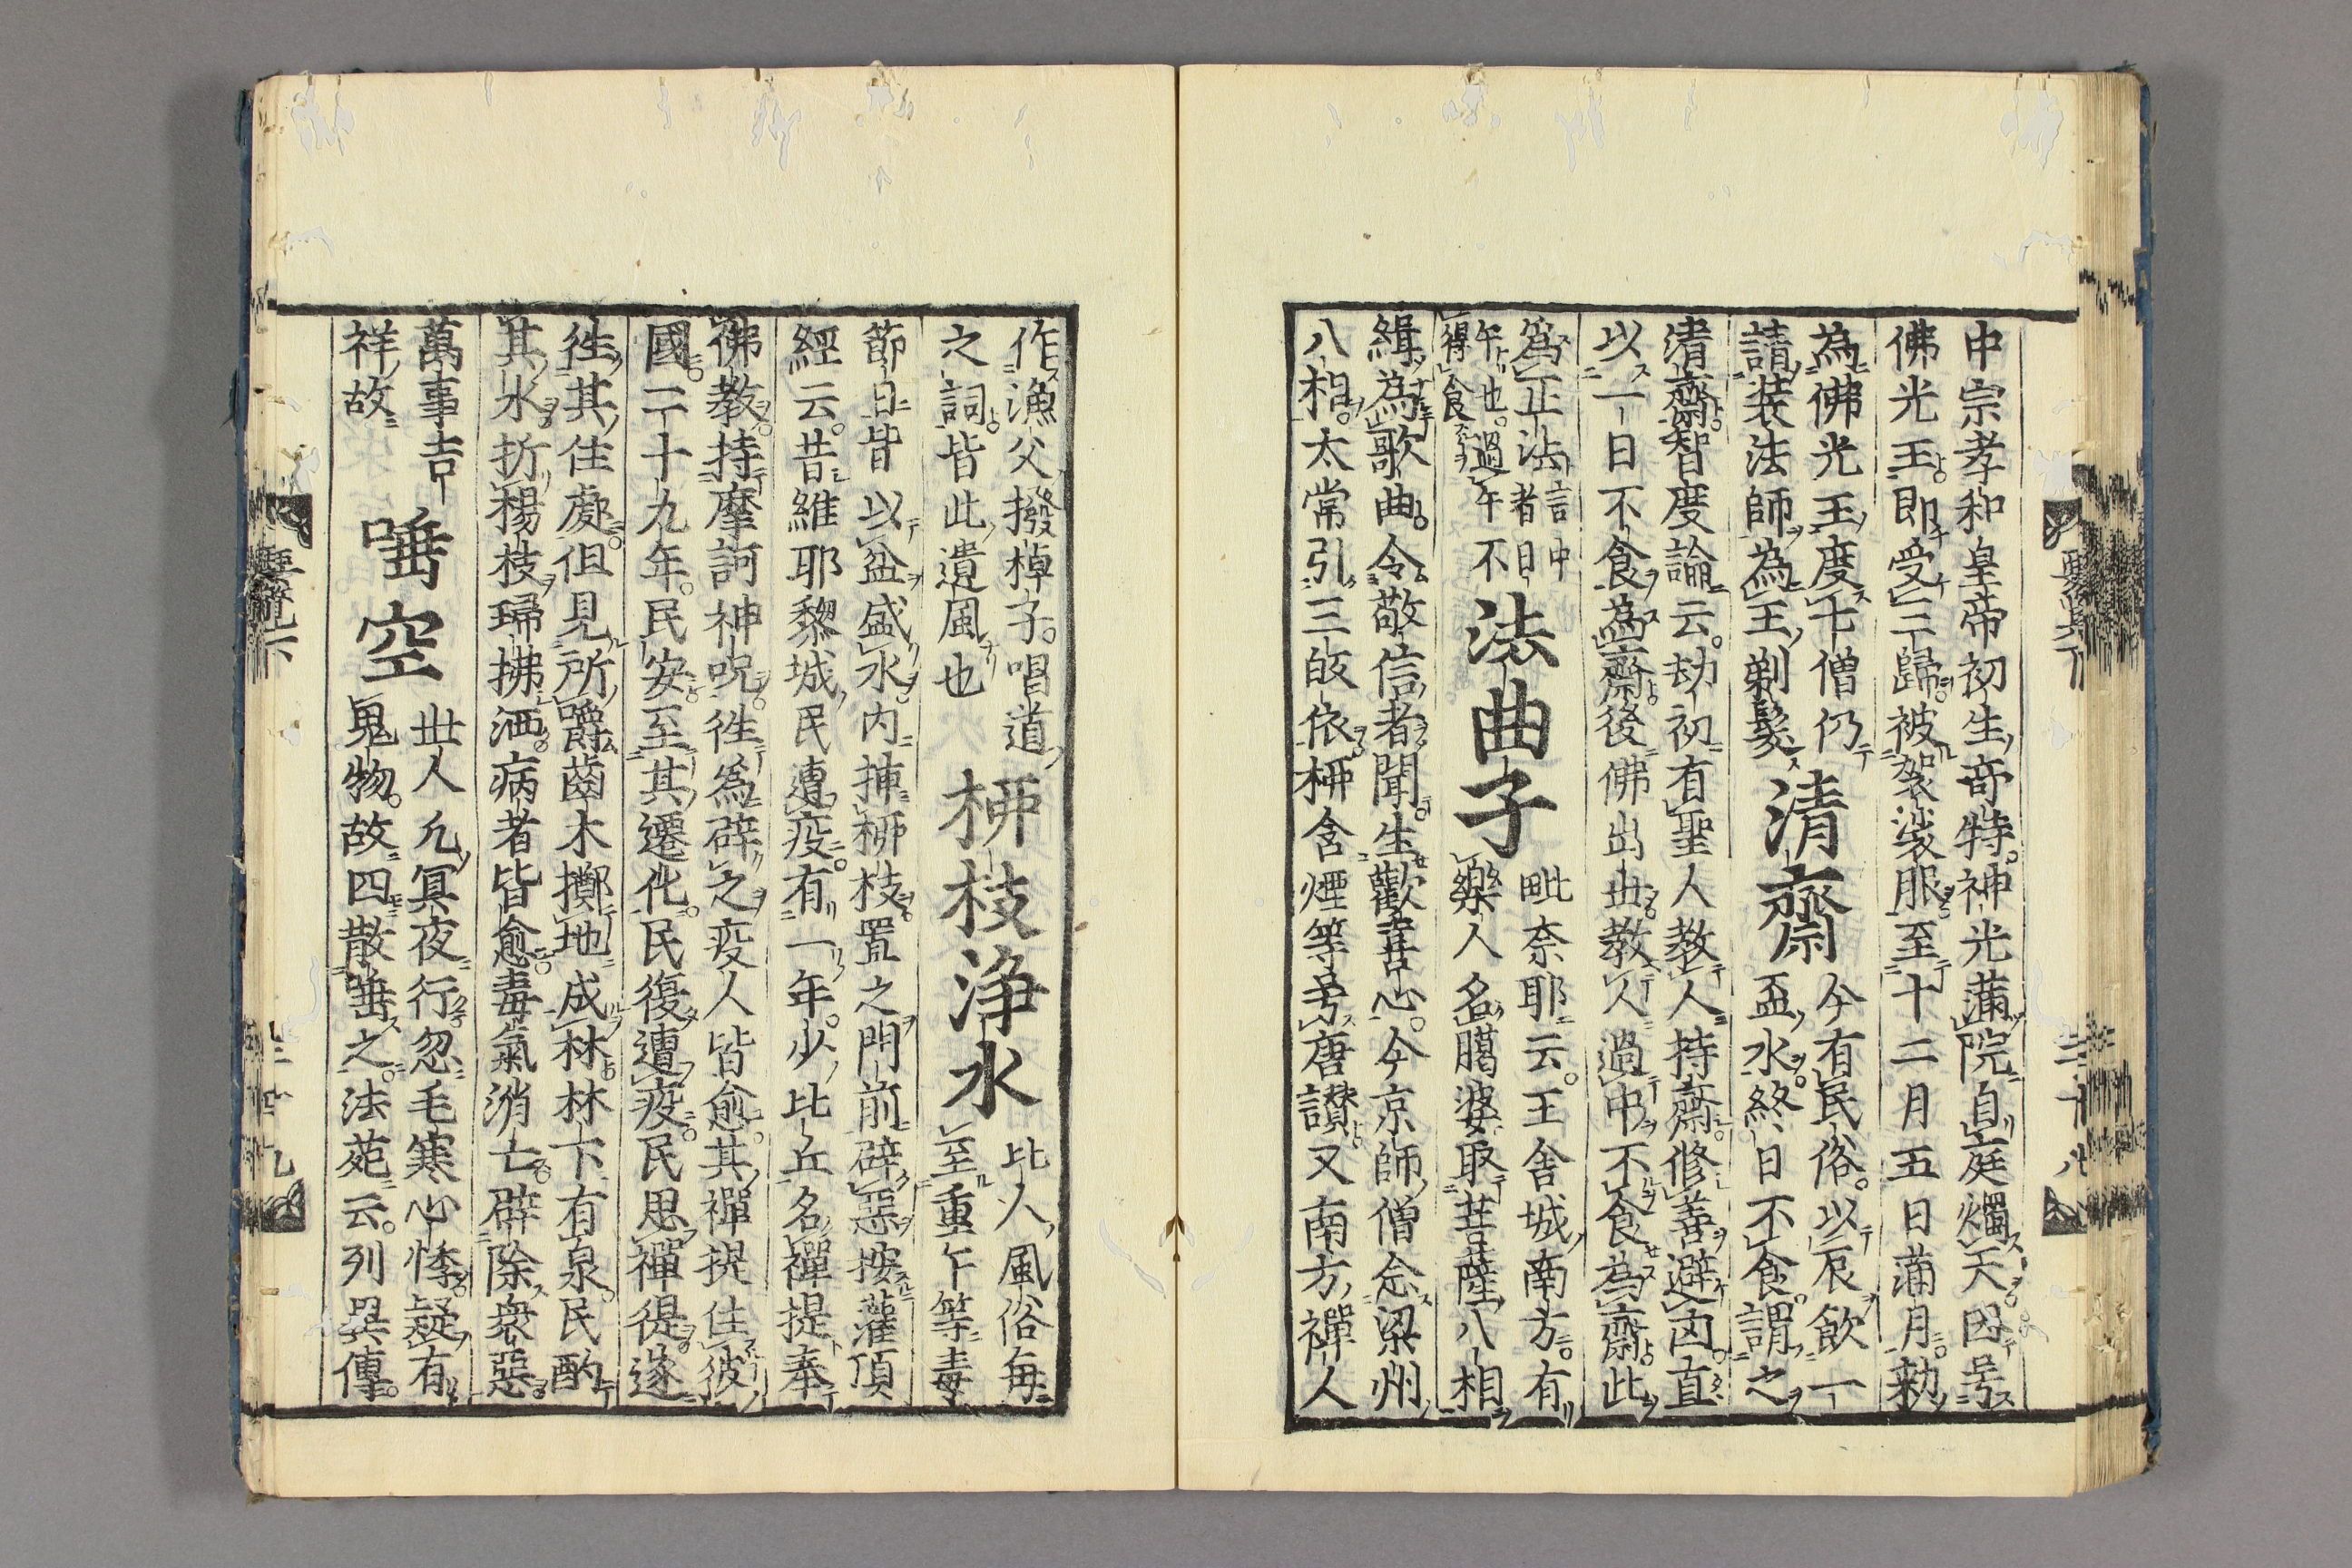 中宗孝和皇帝初生竒特神光滿院自庭燭天因号
佛光王即受三歸被袈裟服至十二月五日滿月勑
為佛光王度七僧仍
請裝法師為王剃髮
清齋
今有民俗以辰飲一
盃水終日不食謂之
清齋智度論云劫初有聖人教人持齋修善避凶直
以一日不食為齋後佛出世教人過中不食為齋此
為正法
言中
者日
午也過午不
得食
法曲子
毗奈耶云王舍城南方有
樂人名臈婆取菩薩八相
緝為歌曲令敬信者聞生歡喜心今京師僧念梁州
八相太常引三皈依柳含煙等号唐讃又南方禪人
作漁父撥棹子唱道
之詞皆此遺風也
柳枝淨水
比人風俗每
至重午等毒
節日皆以盆盛水内揷柳枝置之門前辟惡按灌頂
經云昔維耶黎城民遭疫有一年少比丘名禪提奉
佛教持摩訶神呪徃為辟之疫人皆愈其禪提住彼
國二十九年民安至其遷化民復遭疫民思禪徥遂
徃其住處但見所嚼齒木擲地成林林下有泉民酌
其水折楊枝掃拂洒病者皆愈毒氣消亡辟除衆惡
萬事吉
祥故
唾空
世人凢冥夜行忽毛寒心悸疑有
鬼物故四散唾之法苑云列異傳
要覽下